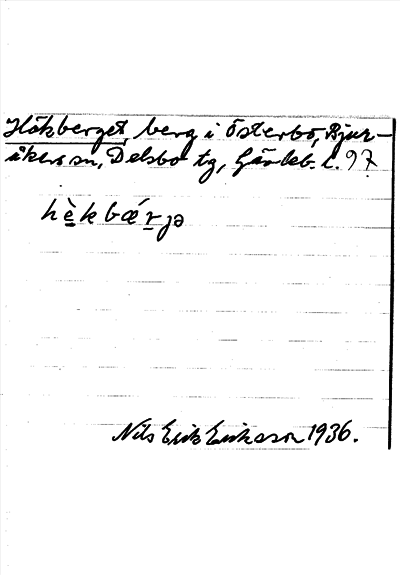 Hökberget, berg i Österbo, Bjur-
åkers sn, Delsbo tg, Gävleb. l. 97
hè̱kbǽṟjə
Nils Erik Eriksson 1936.